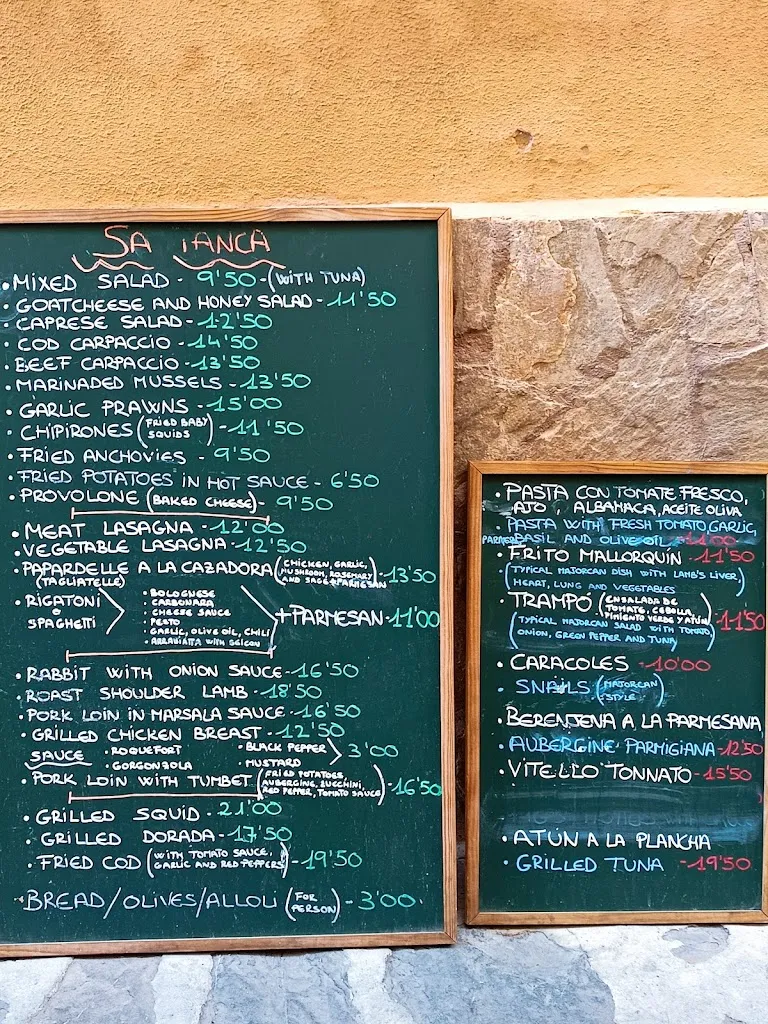 SA TANCA
• MIXED SALAD - 9'50 - (WITH TUNA)
• GOATCHEESE AND HONEY SALAD - 11'50
• CAPRESE SALAD - 12'50
• COD CARPACCIO - 14'50
• BEEF CARPACCIO - 13'50
• MARINADED MUSSELS - 13'50
• GARLIC PRAWNS - 15'00
• CHIPIRONES (FRIED BABY SQUIDS) - 11'50
• FRIED ANCHOVIES - 9'50
• FRIED POTATOES IN HOT SAUCE - 6'50
• PROVOLONE (BAKED CHEESE) - 9'50
• MEAT LASAGNA - 12'00
• VEGETABLE LASAGNA - 12'50
• PAPARDELLE A LA CAZADORA (CHICKEN, GARLIC, MUSHROOM, ROSEMARY AND SAGE + PARMESAN) - 13'50
(TAGLIATELLE)
• RIGATONI
o
SPAGHETTI
• BOLOGNESE
• CARBONARA
• CHEESE SAUCE
• PESTO
• GARLIC, OLIVE OIL, CHILI
• ARRABIATTA WITH BEICON
+ PARMESAN - 11'00
• RABBIT WITH ONION SAUCE - 16'50
• ROAST SHOULDER LAMB - 18'50
• PORK LOIN IN MARSALA SAUCE - 16'50
• GRILLED CHICKEN BREAST - 12'50
SAUCE • ROQUEFORT • BLACK PEPPER
• GORGONZOLA • MUSTARD 3'00
• PORK LOIN WITH TUMBET (FRIED POTATOES, AUBERGINE, ZUCCHINI, RED PEPPER, TOMATO SAUCE) - 16'50
• GRILLED SQUID - 21'00
• GRILLED DORADA - 17'50
• FRIED COD (WITH TOMATO SAUCE, GARLIC AND RED PEPPERS) - 19'50
• BREAD/OLIVES/ALLOLI (FOR PERSON) - 3'00
• PASTA CON TOMATE FRESCO,
AJO, ALBAHACA, ACEITE OLIVA
• PASTA WITH FRESH TOMATO, GARLIC,
BASIL AND OLIVE OIL - 11'00
• FRITO MALLORQUÍN - 11'50
(TYPICAL MAJORCAN DISH WITH LAMB'S LIVER,
HEART, LUNG AND VEGETABLES
• TRAMPÓ (ENSALADA DE TOMATE, CEBOLLA, PIMIENTO VERDE Y ATÚN) - 11'50
(TYPICAL MAJORCAN SALAD WITH TOMATO,
ONION, GREEN PEPPER AND TUNA)
• CARACOLES - 10'00
• SNAILS (MAJORCAN STYLE)
• BERENJENA A LA PARMESANA
• AUBERGINE PARMIGIANA - 12'50
• VITELLO TONNATO - 15'50
• ATÚN A LA PLANCHA
• GRILLED TUNA - 19'50